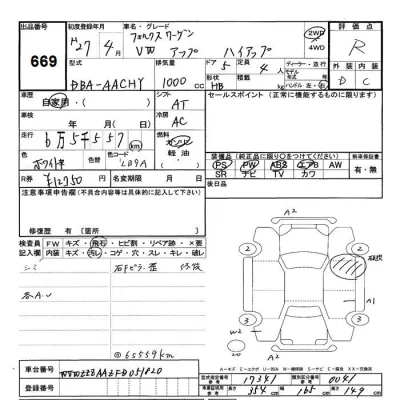 出品番号 669
初度登録年月 H27年4月
車名・グレード フォルクスワーゲン VW アップ ハイアップ
2WD 4WD
評価点 R
型式 DBA-AACHY
排気量 1000 cc
ドア 5
定員 4人
形状 HB
積載量 kg
ディーラー・並行
モデル年式
ハンドル 左・右
外装 D
内装 C
車歴 自家用
シフト AT
セールスポイント (正常に機能するものに限る)
車検 年 月( 日)
冷房 AC
走行 6万5千557 km
燃料 ガソリン 軽油
色 ホワイト
色替
色コード LB9A
R券 ¥12750
名変期限 月 日
装備品 (純正品に限り○をつけてください)
PS PW ABS エアB AW
SR ナビ TV カワ
新車保証書 有・無
注意事項申告欄 (不具合内容等は具体的に記入して下さい)
後日品
修復歴 有 [箇所
検査員記入欄 FW キズ・飛石・ヒビ割・リペア跡・×要
内装 キズ・汚レ・コゲ・穴・スレ・キレ・破レ
シミ
各A.U
◎65559km
A2
A1
A2
W2
3
3
2
2
A-キズ E-エクボ U-凹み W-補修跡 S-サビ C-腐食 XX-交換済
車台番号 WVWZZZAAZFD051820
登録番号
型式指定番号 17341
類別区分番号 0041
長さ 354 cm
幅 165 cm
高さ 149 cm